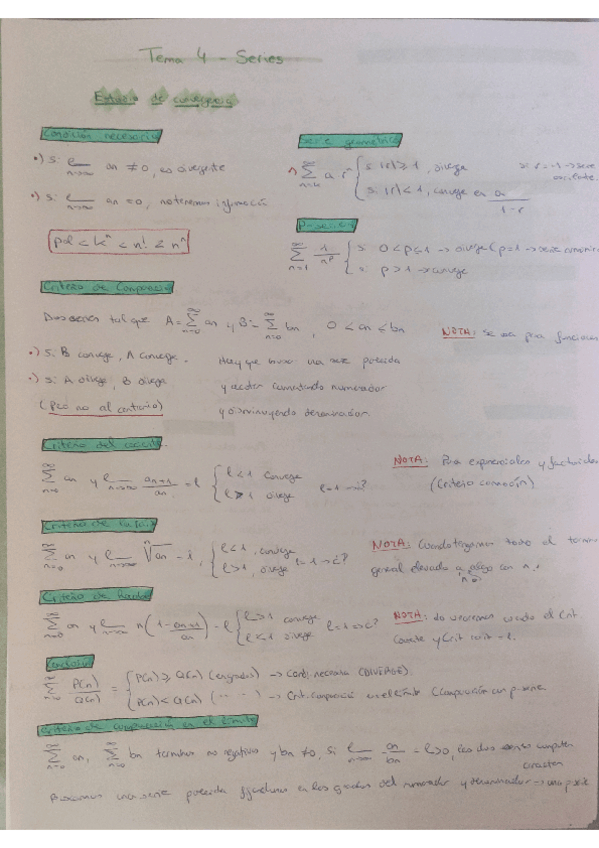 Tema 4 - Series
Estudio de convergencia
Condición necesaria
•) Si lim n→∞ an ≠ 0, es divergente
•) Si lim n→∞ an = 0, no tenemos información
pol < kⁿ < n! < nⁿ
Serie geométrica
∞ Σ n=k a rⁿ { si |r| ≥ 1, diverge
si |r| < 1, converge en a / 1-r
si r = -1 → serie oscilante.
P-series
∞ Σ n=1 1/nᵖ { si 0 < p ≤ 1 → diverge (p=1 → serie armónica
si p > 1 → converge
Criterio de Comparación
Dos series tal que A = ∞ Σ n=0 an y B = ∞ Σ n=0 bn, 0 < an ≤ bn
NOTA: Se usa para funciones
•) Si B converge, A converge.
•) Si A diverge, B diverge
(Pero no al contrario)
Hay que buscar una serie parecida
y acotar aumentando numerador
y disminuyendo denominador.
Criterio del cociente
∞ Σ n=0 an y lim n→∞ an+1/an = l { l<1 converge
l>1 diverge
l=1 → ¿?
NOTA: Para exponenciales y factoriales
(Criterio comodín)
Criterio de la raíz
∞ Σ n=0 an y lim n→∞ ⁿ√an = l, { l<1, converge
l>1, diverge
l=1 → ¿?
NOTA: Cuando tengamos todo el termino
general elevado a algo con n.
Criterio de Raabe
∞ Σ n=0 an y lim n→∞ n(1 - an+1/an) = l { l>1 converge
l<1 diverge
l=1 → ¿?
NOTA: do usaremos cuando el Crit
Cociente y Crit raíz = 1.
∞ Σ n=0 P(n)/Q(n) = { P(n) ≥ Q(n) (en grados) → Cond. necesaria (DIVERGE).
P(n) < Q(n) (" ") → Crit. comparación en el límite (Comparación con p-serie
Criterio de comparación en el límite
∞ Σ n=0 an, ∞ Σ n=0 bn terminos no negativos y bn ≠ 0, si lim n→∞ an/bn = l > 0, las dos series comparten
carácter
Buscamos una serie parecida fijándonos en los grados del numerador y denominador → una p-serie